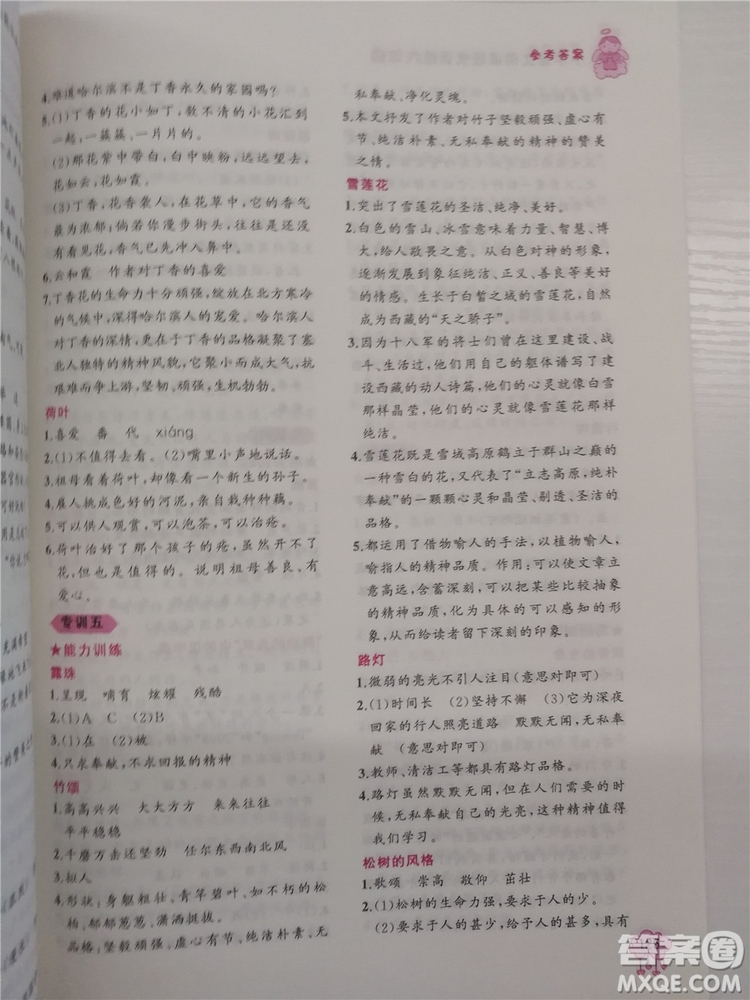 参考答案
4.难道哈尔滨不是丁香永久的家园吗?
5.(1)丁香的花小如丁,数不清的小花汇到
一起,一簇簇,一片片的。
(2)那花紫中带白,白中映粉,远远望去,
花如云,花如霞。
(3)丁香,花香袭人,在花草中,它的香气
最为浓郁。倘若你漫步街头,往往是还没
有看见花,香气已先冲入鼻中。
6.云和霞 作者对丁香的喜爱
7.丁香花的生命力十分顽强,绽放在北方寒冷
的气候中,深得哈尔滨人的宠爱。哈尔滨人
对丁香的深情,更在于丁香的品格凝聚了塞
北人独特的精神风貌,它展示了大气,抗
艰难而争上游,坚韧、顽强,生机勃勃。
荷叶
1.喜爱 番 代 xiáng
2.(1)不值得去看。(2)嘴里小声地说话。
3.祖母看着荷叶,却像看一个新生的孙子。
4.雇人挑成色好的河泥,亲自栽种种藕。
5.可以供人观赏,可以泡茶,可以治疮。
6.荷叶治好了那个孩子的疮,虽然开不了
花,但也是值得的。说明祖母善良、有
爱心。
专训五
★能力训练
露珠
1.呈现 哺育 炫耀 残酷
2.(1)A C (2)B
3.(1)在 (2)被
4.只求奉献,不求回报的精神
竹颂
1.高高兴兴 大大方方 来来往往
平平稳稳
2.千磨万击还坚劲 任尔东西南北风
3.拟人
4.形状:身躯粗壮、青竿碧叶、如不朽的松
柏、郁郁葱葱、潇洒挺拔。
品格:坚毅顽强、虚心有节、纯洁朴素、无
私奉献、净化灵魂。
5.本文抒发了作者对竹子坚毅顽强、虚心有
节、纯洁朴素、无私奉献的精神的赞美
之情。
雪莲花
1.突出了雪莲花的圣洁、纯净、美好。
2.白色的雪山、冰雪意味着力量、智慧、博
大,给人敬畏之意。从白色对神的形象,
逐渐发展到象征纯洁、正义、善良等美好
的情感。生长于白皙之城的雪莲花,当然
也就成了西藏的“天之骄子”。
3.因为十八军的将士们曾在这里建设、战
斗、生活,他们用自己的躯体谱写了建设
西藏的动人诗篇,他们的心灵就像白雪
那样晶莹,他们的心灵就像雪莲花那样
纯洁。
4.雪莲花既是雪域高原鹤立于群山之巅的
一种雪白的花,又代表了“立志高原,纯朴
奉献”的一颗颗心灵和晶莹、剔透、圣洁的
品格。
5.都运用了借物喻人的手法,以植物喻人,
喻指人的精神品质。作用:可以使文章立
意高远,含蓄深刻,可以把某些比较抽象
的精神品质,化为具体的可以感知的形
象,从而给读者留下深刻的印象。
路灯
1.微弱的亮光不引人注目(意思对即可)
2.(1)时间长 (2)坚持不懈 (3)它在深夜
回家的行人照亮道路 默默无闻,无私奉
献 (意思对即可)
3.教师、清洁工等都具有路灯品格。
4.路灯虽然默默无闻,但在人们需要的时
候,无私奉献自己的光亮,这种精神值得
我们学习。
松树的风格
1.歌颂 崇高 敬仰 茁壮
2.(1)松树的生命力强,要求于人的少。
(2)要求于人的甚少,给予人的甚多,具有
答案圈
MXQE.COM